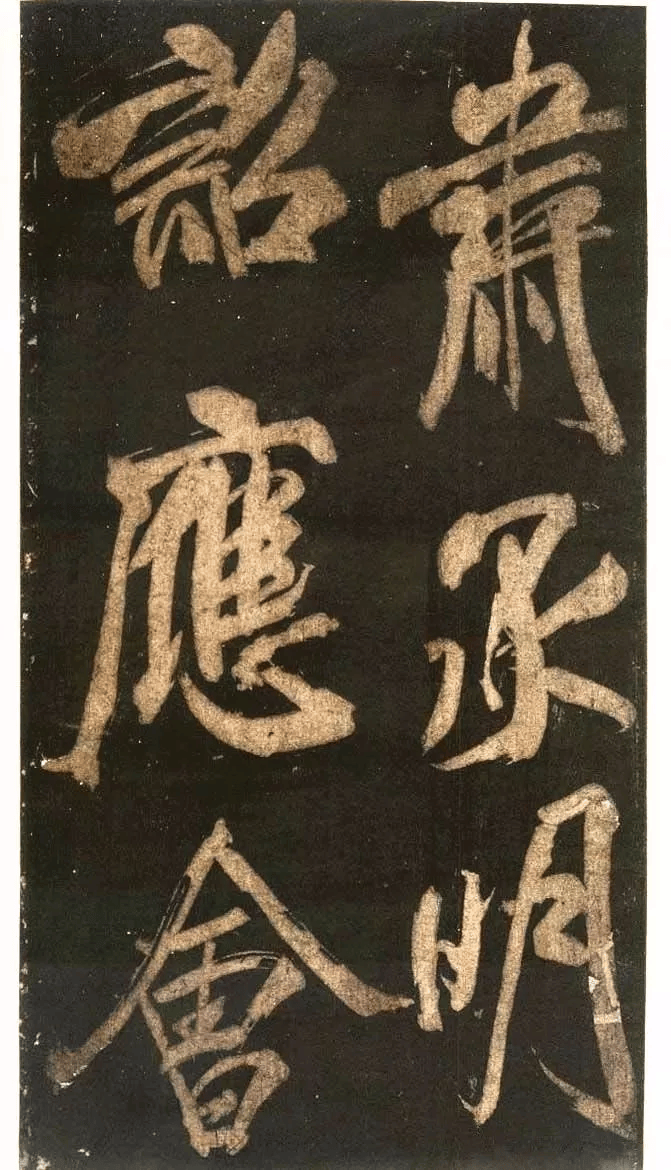 肅承明
詔應會